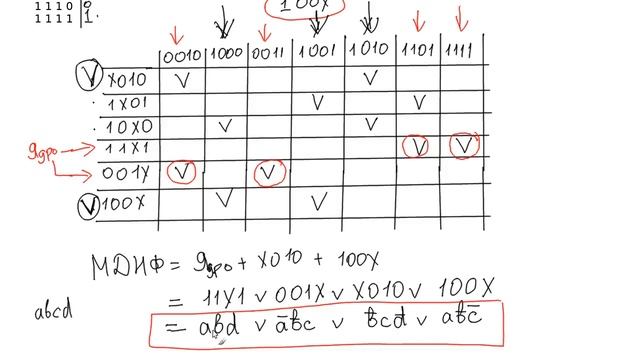 1110 0
1111 1.
100X
0010 1000 0011 1001 1010 1101 1111
V X010 V V
1X01 V V
10X0 V V
Ядро 11X1 V V
001X V V
V 100X V V
МДНФ = Ядро + X010 + 100X
= 11X1 v 001X v X010 v 100X
abcd
= abd v a̅b̅c v b̅cd̅ v ab̅c̅